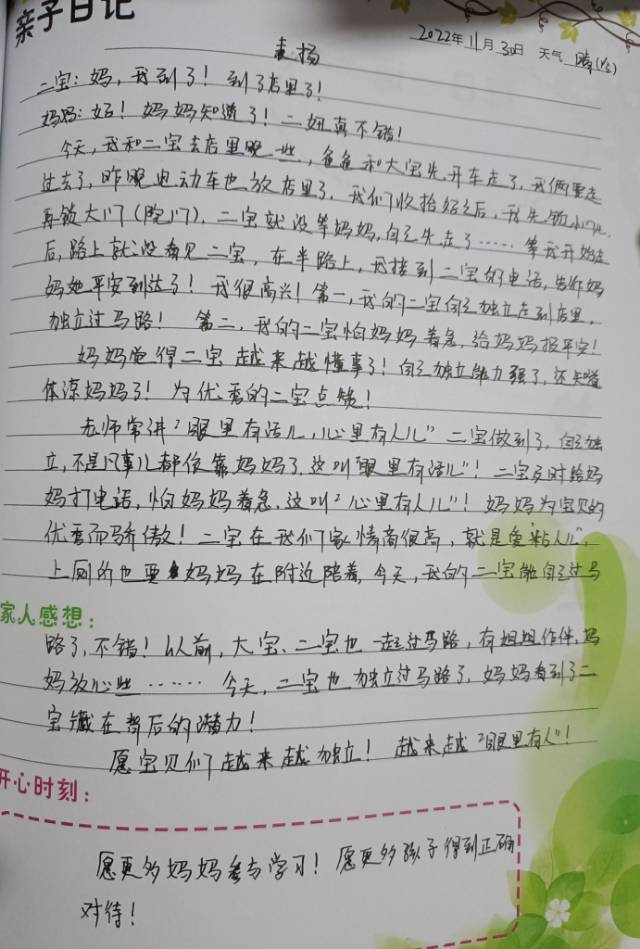 亲子日记
2022年11月30日 天气 晴
表扬
二宝:妈,我到了!到了店里了!
妈妈:好!妈妈知道了!二妞真不错!
今天,我和二宝去店里晚一些,爸爸和大宝先开车走了,我俩要走
过去了,昨晚电动车也放店里了,我们收拾好之后,我先锁小门,
再锁大门(院门),二宝就没等妈妈,自己先走了……等我开始走
后,路上就没看见二宝,在半路上,我接到二宝的电话,告诉妈
妈她平安到达了!我很高兴!第一,我的二宝自己独立走到店里,
独立过马路!第二,我的二宝怕妈妈着急,给妈妈报平安!
妈妈觉得二宝越来越懂事了!自己独立能力强了,还知道
体凉妈妈了!为优秀的二宝点赞!
老师常讲"眼里有活儿,心里有人儿"二宝做到了,自己独
立,不是凡事儿都依靠妈妈了,这叫"眼里有活儿"!二宝及时给妈
妈打电话,怕妈妈着急,这叫"心里有人儿"!妈妈为宝贝的
优秀而骄傲!二宝在我们家情商很高,就是爱"粘人儿",
上厕所也要妈妈在附近陪着,今天,我的二宝能自己过马
家人感想:
路了,不错!以前,大宝、二宝也一起过马路,有姐姐作伴,妈
妈放心些……今天,二宝也独立过马路了,妈妈看到了二
宝藏在背后的潜力!
愿宝贝们越来越独立!越来越"眼里有人"!
开心时刻:
愿更多妈妈参与学习!愿更多孩子得到正确
对待!